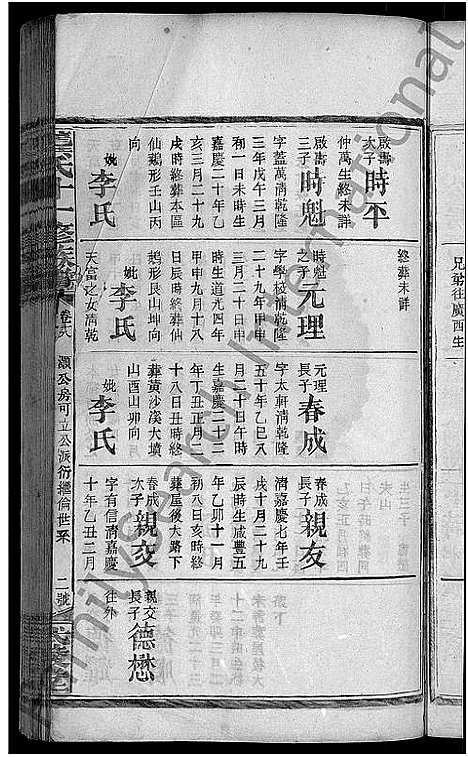 兄弟往廣西生
啟壽
次子
時平
仲萬生終未詳
啟壽
三子
時魁
字蓋萬清乾隆
三年戊午三月
和一日未時生
嘉慶二十年乙
亥三月二十九
戌時終葬本區
仙鵝形壬山丙
向
妣李氏
終葬未詳
時魁
之子
元理
字學校清乾隆
二十九年甲申
三月二十日申
時生道光四年
甲申九月十八
日辰時終葬仙
鵝形艮山坤向
妣李氏
天富之女清乾
元理
長子
春成
字太軒清乾隆
五十年乙巳八
月二十日午時
生嘉慶二十二
年丁丑正月二
十八日丑時終
葬黃沙溪大墳
山酉山卯向
妣李氏
春成
長子
親友
清嘉慶七年壬
戌十月二十九
辰時生咸豐五
年乙卯十一月
初八日亥時終
葬屋後大路下
春成
次子
親交
字有信清嘉慶
十年乙丑二月
親交
長子
德懋
往外
氏十一修族譜
卷六
灝公房可立公派衍
倫世系
二號
familysearch International